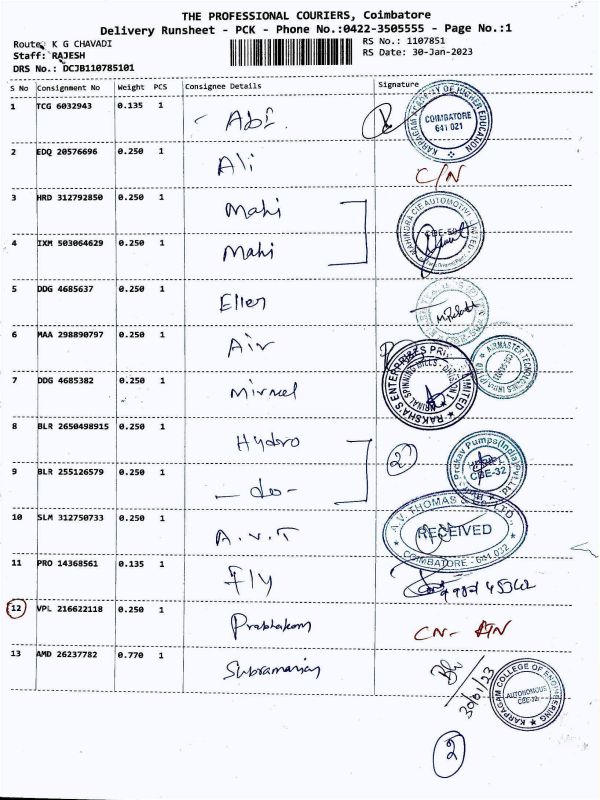 THE PROFESSIONAL COURIERS, Coimbatore
Delivery Runsheet - PCK - Phone No.:0422-3505555 - Page No.:1
Route: K G CHAVADI
RS No.: 1107851
Staff: RAJESH
RS Date: 30-Jan-2023
DRS No.: DCJB110785101
S No Consignment No Weight PCS Consignee Details Signature
1 TCG 6032943 0.135 1 - Abi.
KARPAGAM ACADEMY OF HIGHER EDUCATION
COIMBATORE
641 021
2 EDQ 20576696 0.250 1 Ali C/N
3 HRD 312792850 0.250 1 Mahi
MAHINDRA CIE AUTOMOTIVE LIMITED
4 IXM 503064629 0.250 1 Mahi
5 DDG 4685637 0.250 1 Ellen
6 MAA 298890797 0.250 1 Air
7 DDG 4685382 0.250 1
RAKSHA'S ENTERPRISES PRIVATE LIMITED
8 BLR 2650498915 0.250 1 Hydro 2
CBE-32
9 BLR 255126579 0.250 1 - do -
10 SLM 312750733 0.250 1 A.V.T
A.V. THOMAS & Co. LTD.,
RECEIVED
COIMBATORE - 641 032
11 PRO 14368561 0.135 1 Fly
12 VPL 216622118 0.250 1 Prabhakam CN-
13 AMD 26237782 0.770 1 Subramanian
30/01/23
KARPAGAM COLLEGE OF ENGINEERING
AUTONOMOUS
2